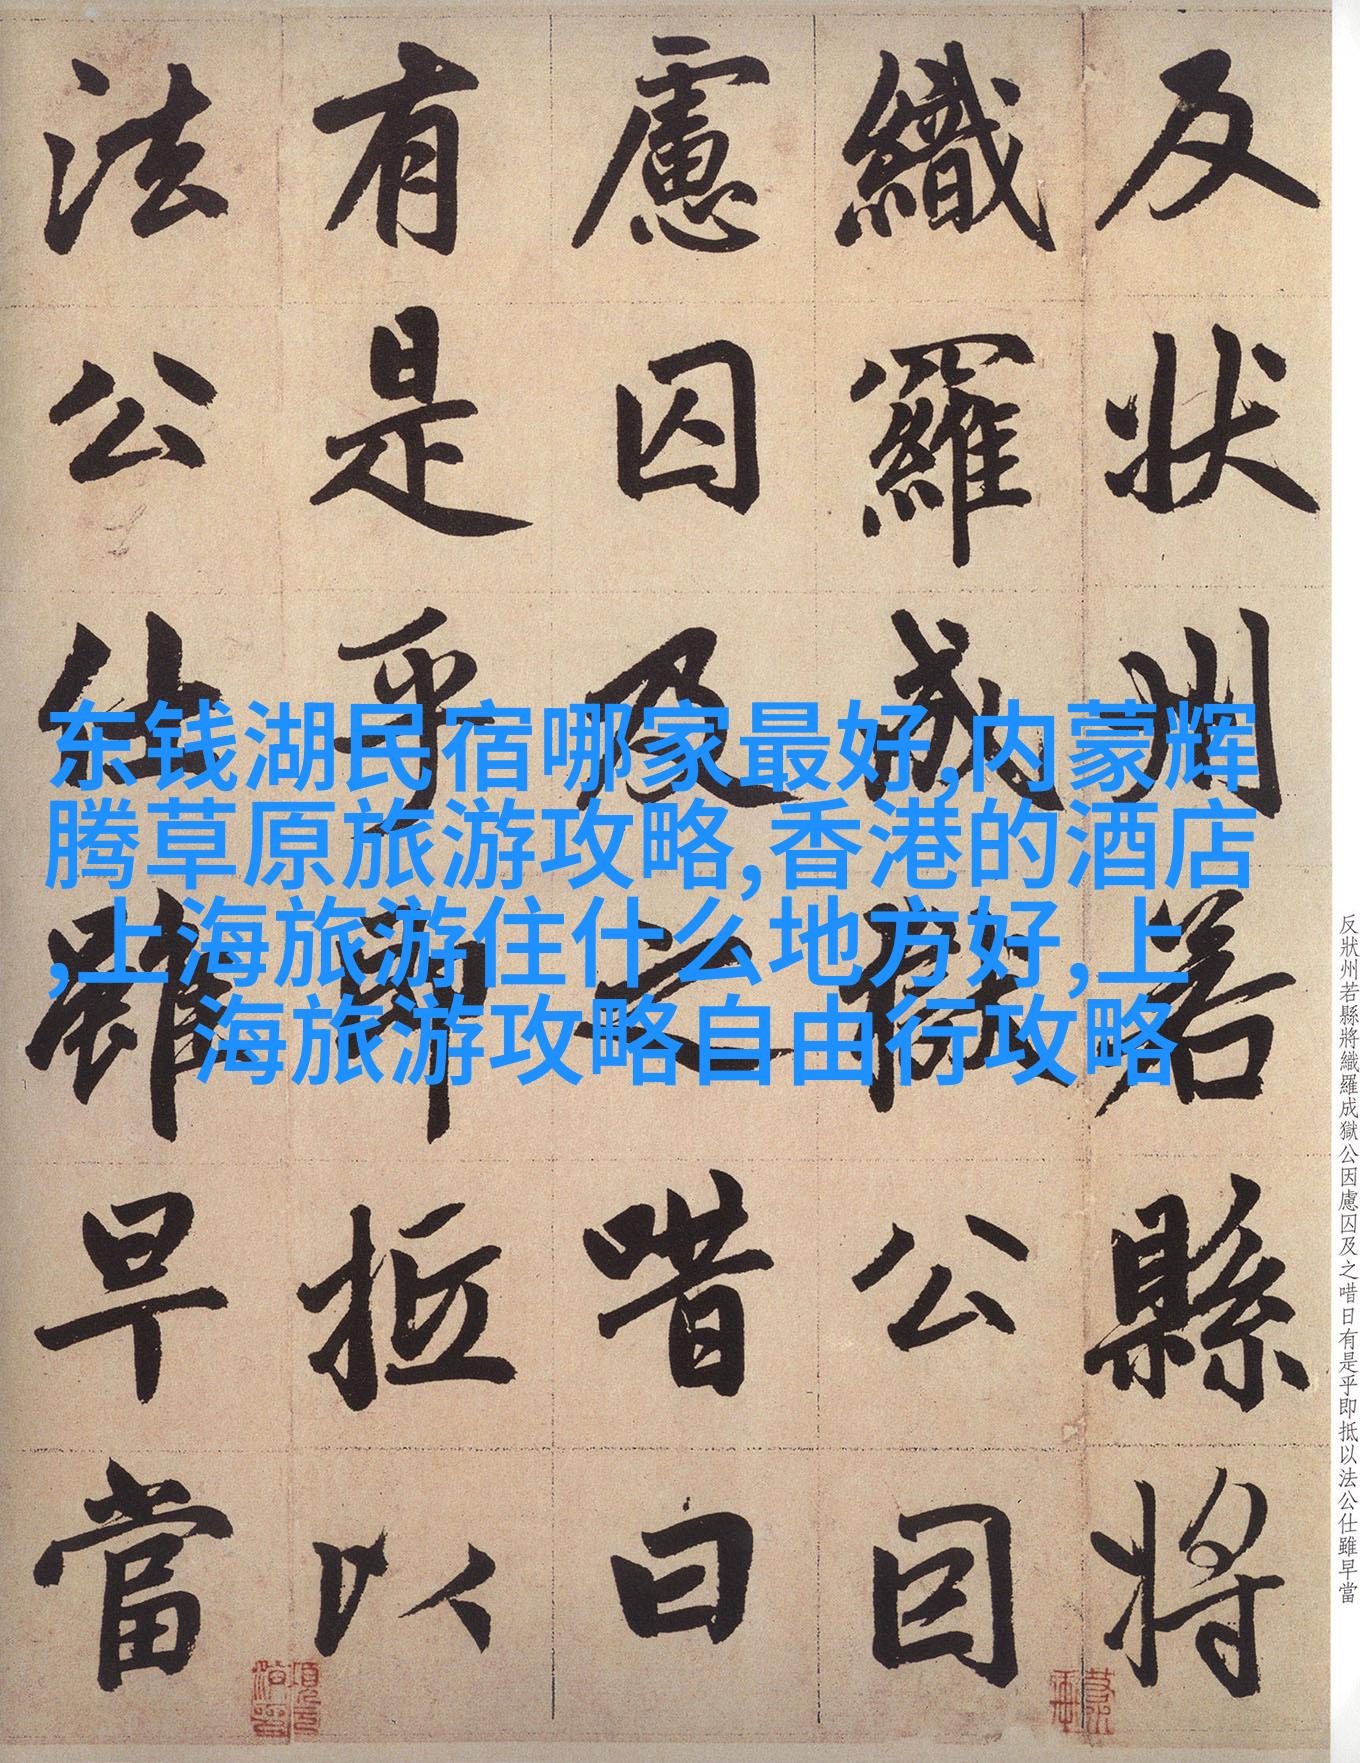 反状州若縣將
織羅成獄公因
慮囚及之唶曰
有是乎即抵以
法公仕雖早當
东钱湖民宿哪家最好,内蒙辉
腾草原旅游攻略,香港的酒店
,上海旅游住什么地方好,上
海旅游攻略自由行攻略
反狀州若縣將織羅成獄公因慮囚及之唶日有是乎即抵以法公仕雖早當